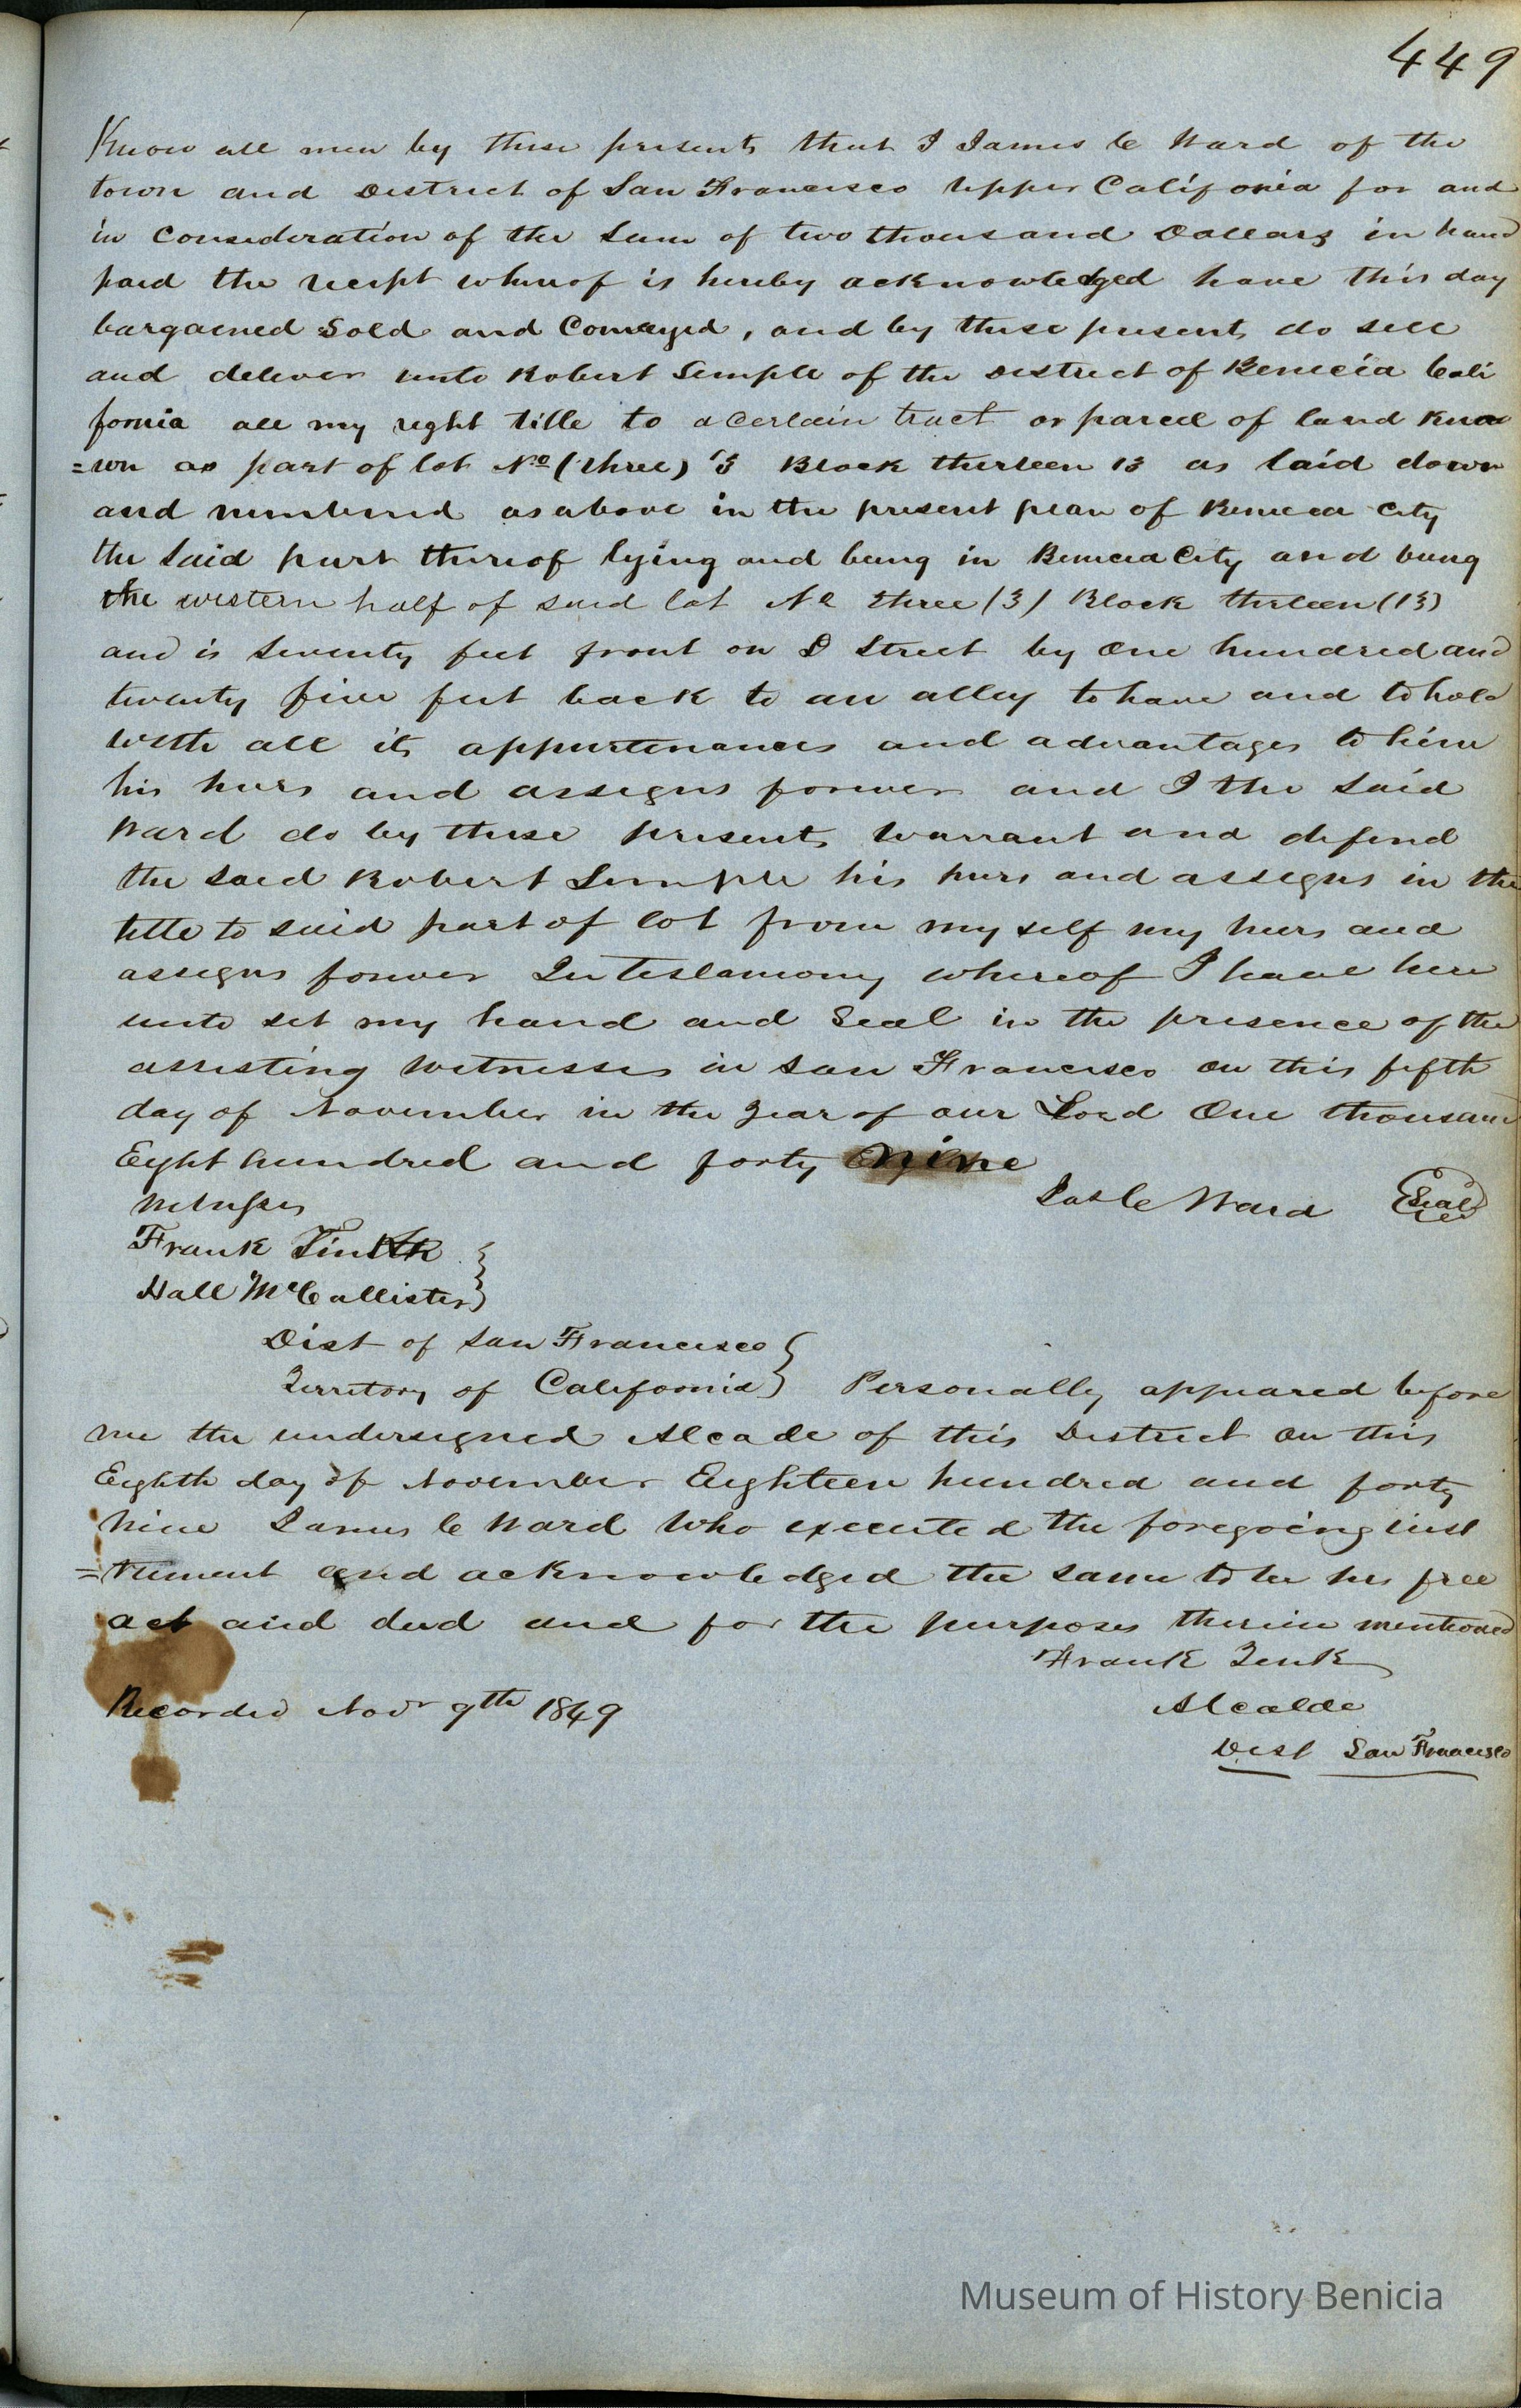 449
Know all men by these presents that I James C Ward of the
town and District of San Francisco Upper California for and
in Consideration of the Sum of two thousand Dollars in hand
paid the reciept whereof is hereby acknowledged have this day
bargained Sold and Conveyed, and by these presents do sell
and deliver unto Robert Semple of the District of Benicia Cali
fornia all my right title to a Certain tract or parcel of land kno
=wn as part of lot No (three) 3 Block thirteen 13 as laid down
and numbered as above in the present plan of Benicia City
the Said part thereof lying and being in Benicia City and being
the western half of said lot No three (3) Block thirteen (13)
and is Seventy feet front on D Street by One hundred and
twenty five feet back to an alley to have and to hold
with all its appurtenances and advantages to him
his heirs and assigns forever and I the Said
Ward do by these presents warrant and defend
the said Robert Semple his heirs and assigns in the
title to said part of lot from my self my heirs and
assigns forever In testamony whereof I have here
unto set my hand and Seal in the presence of the
assisting witnesses in San Francisco on this fifth
day of November in the Year of our Lord One thousand
Eight hundred and forty nine
Jas C Ward Seal
Witnesses
Frank
Hall McCallister
Dist of San Francisco
Territory of California Personally appeared before
me the undersigned Alcade of this District on this
Eighth day of November Eighteen hundred and forty
nine James C Ward who executed the foregoing inst
=rument and acknowledged the same to be his free
act and deed and for the purposes therein mentioned
Frank Turk
Recorded Novr 9th 1849
Alcalde
Dist San Francisco
Museum of History Benicia